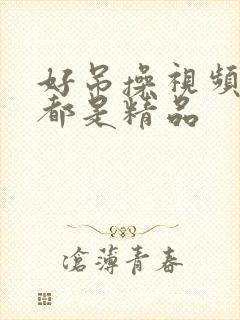 好吊操視頻
都是精品
滄薄青春